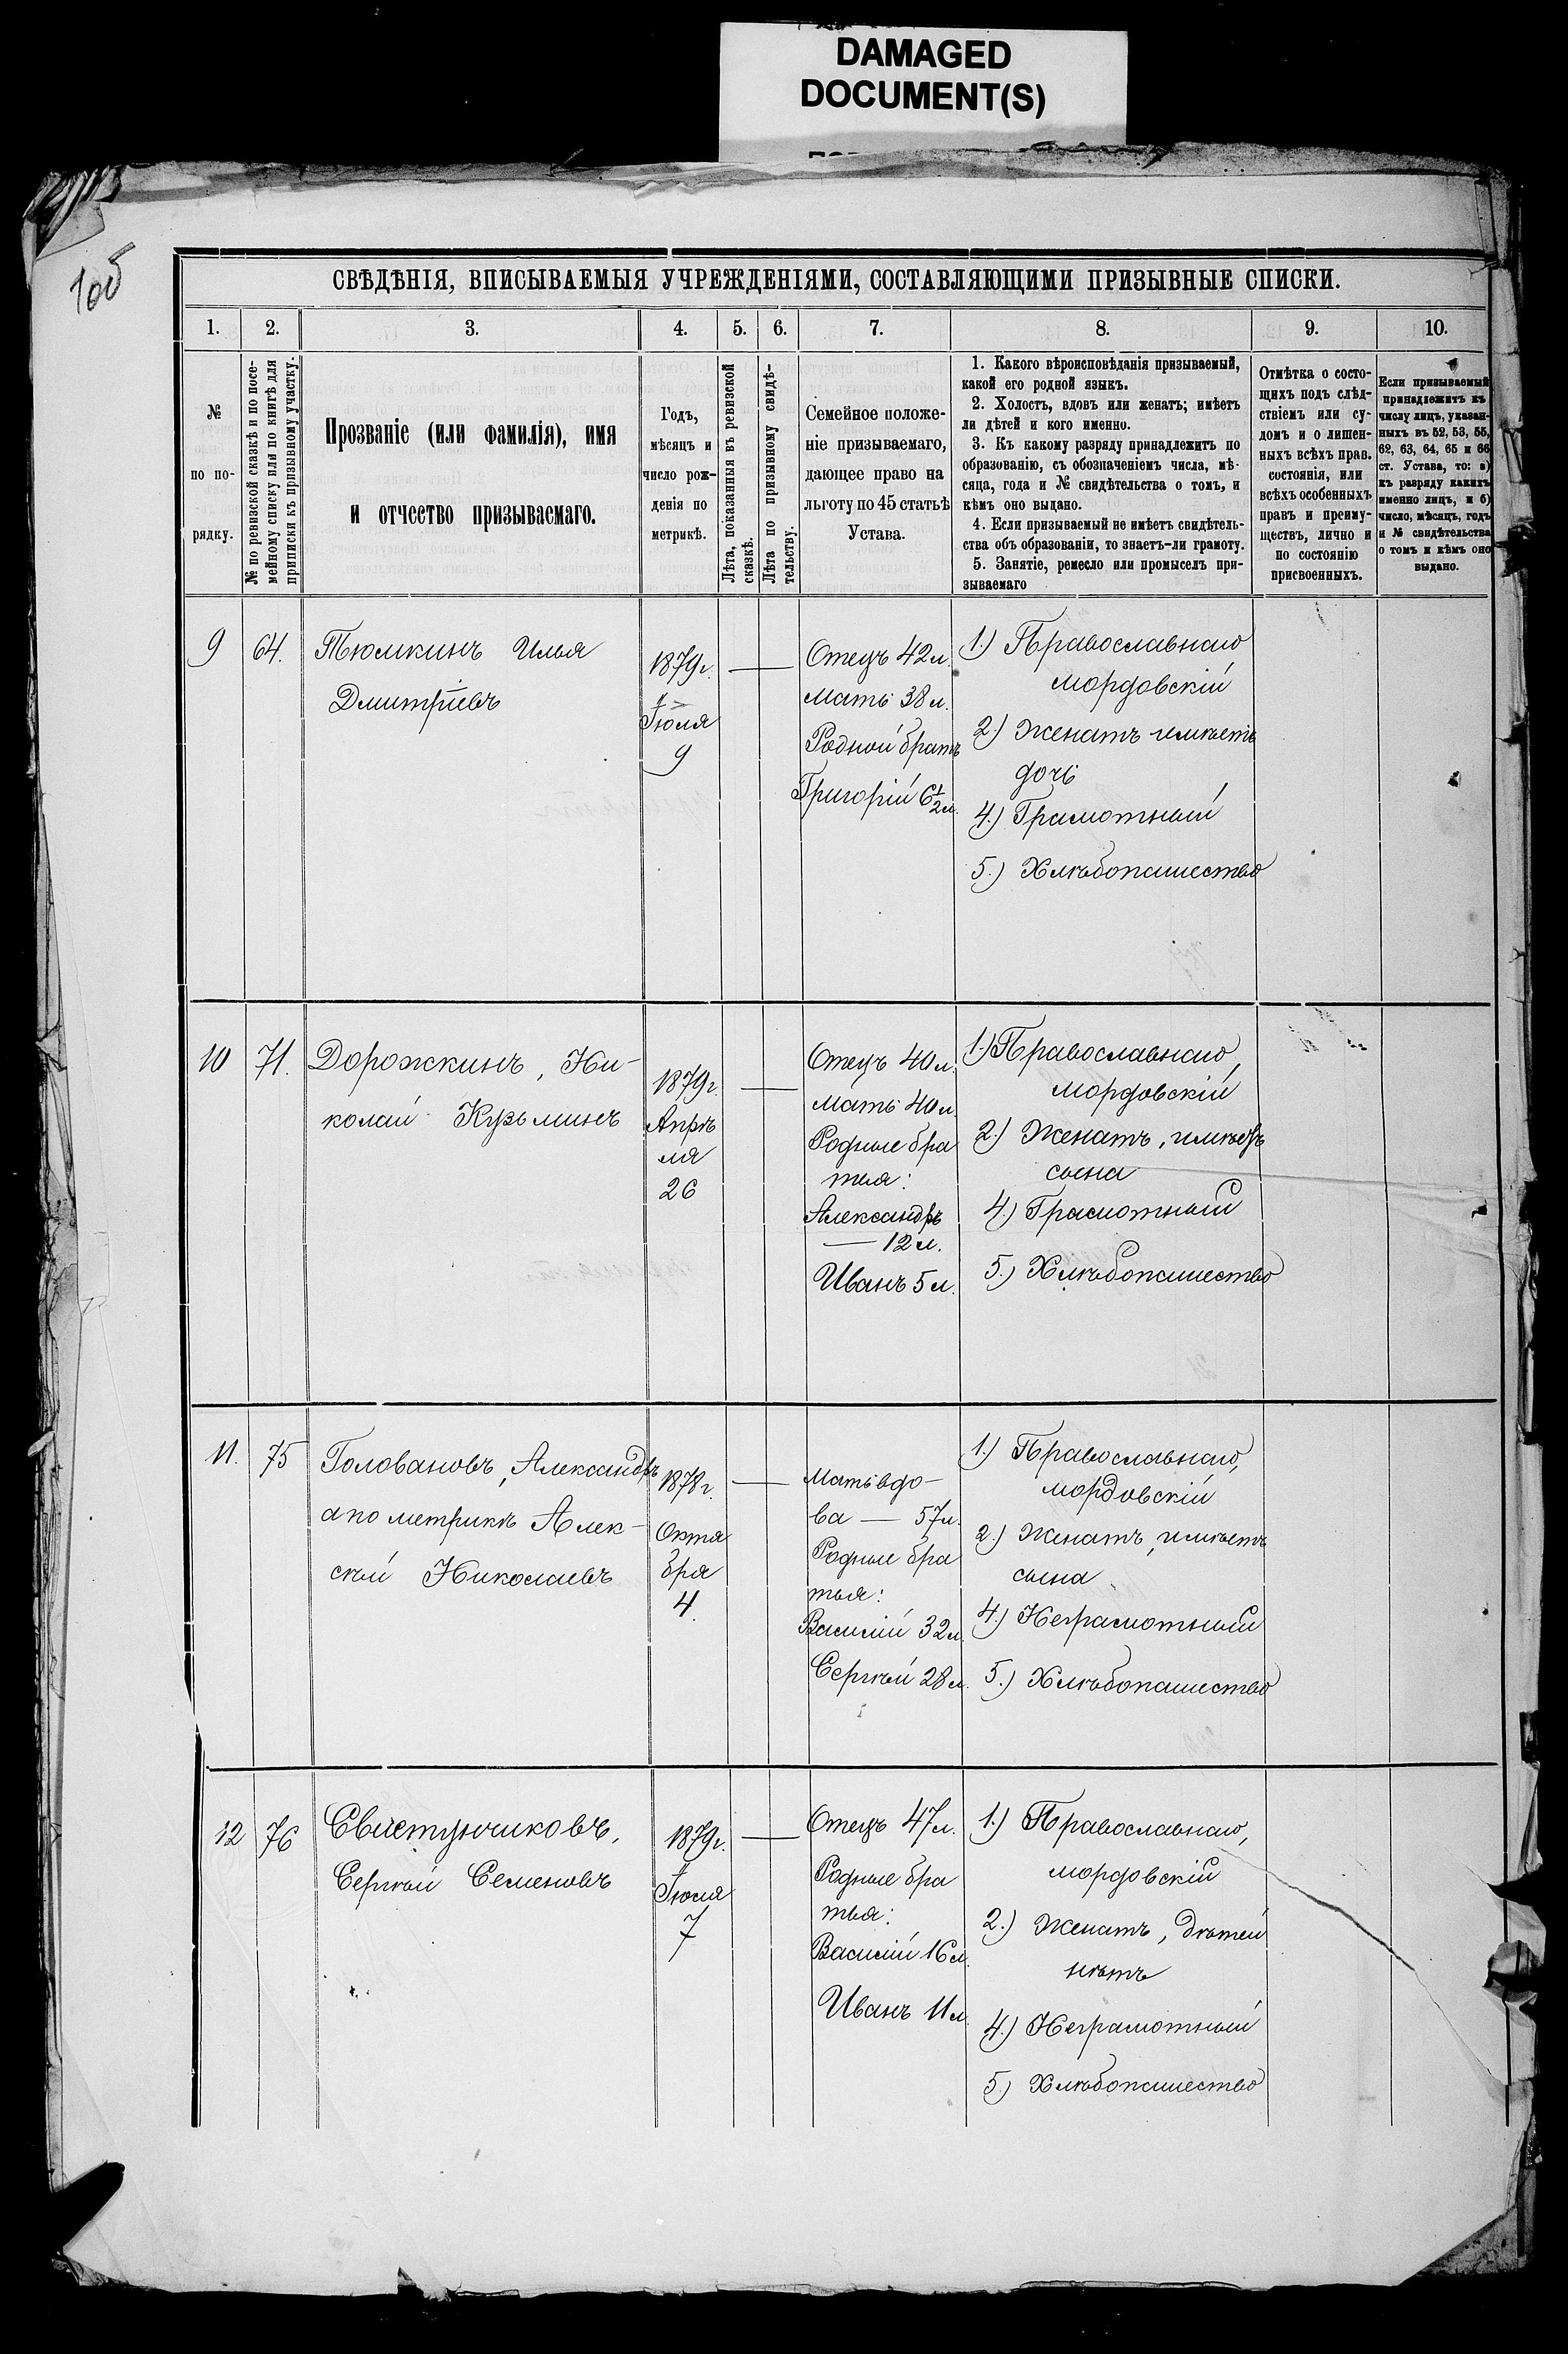 DAMAGED
DOCUMENT(S)
10об
СВѢДѢНІЯ, ВПИСЫВАЕМЫЯ УЧРЕЖДЕНІЯМИ, СОСТАВЛЯЮЩИМИ ПРИЗЫВНЫЕ СПИСКИ.
1. 2. 3. 4. 5. 6. 7. 8. 9. 10.
№
по по-
рядку.
№ по ревизской сказкѣ и по посе-
мейному списку или по книгѣ для
приписки къ призывному участку.
Прозваніе (или фамилія), имя
и отчество призываемаго.
Годъ,
мѣсяцъ и
число рож-
денія по
метрикѣ.
Лѣта, показанныя въ ревизской
сказкѣ.
Лѣта по призывному свидѣ-
тельству.
Семейное положе-
ніе призываемаго,
дающее право на
льготу по 45 статьѣ
Устава.
1. Какого вѣроисповѣданія призываемый,
какой его родной языкъ.
2. Холостъ, вдовъ или женатъ; имѣетъ
ли дѣтей и кого именно.
3. Къ какому разряду принадлежитъ по
образованію, съ обозначеніемъ числа, мѣ-
сяца, года и № свидѣтельства о томъ, и
кѣмъ оно выдано.
4. Если призываемый не имѣетъ свидѣтель-
ства объ образованіи, то знаетъ-ли грамоту.
5. Занятіе, ремесло или промыселъ при-
зываемаго
Отмѣтка о состо-
щихъ подъ слѣд-
ствіемъ или су-
домъ и о лишен-
ныхъ всѣхъ прав.
состоянія, или
всѣхъ особенныхъ
правъ и преиму-
ществъ, лично и
по состоянію
присвоенныхъ.
Если призываемый
принадлежитъ къ
числу лицъ, указан-
ныхъ въ 52, 53, 55,
62, 63, 64, 65 и 66
ст. Устава, то: а)
къ разряду какихъ
именно лицъ, и б)
число, мѣсяцъ, годъ
и № свидѣтельства
о томъ и кѣмъ оно
выдано.
9
64.
Тюмкинъ Илья
Дмитріевъ
1879г.
Іюля
9
Отецъ 42 л.
Мать 38 л.
Родной братъ
Григорій 6 1/2 л.
1.) Православнаго
мордовскій
2.) Женатъ имѣетъ
дочь
4.) Грамотный
5.) Хлѣбопашество
10
71.
Дорожкинъ, Ни-
колай Кузьминъ
1879г.
Апрѣ
ля
26
Отецъ 40 л.
Мать 40 л.
Родные бра
тья:
Александръ
— 12 л.
Иванъ 5 л.
1.) Православнаго,
мордовскій
2.) Женатъ, имѣетъ
сына
4.) Грамотный
5.) Хлѣбопашество
11.
75
Головановъ, Александръ
а по метрикѣ Алек-
сѣй Николаевъ
1878г.
Октя
бря
4.
Мать вдо-
ва — 57 л.
Родные бра
тья:
Василій 32 л.
Сергѣй 28 л.
1.) Православнаго,
мордовскій
2.) Женатъ, имѣетъ
сына
4.) Неграмотный
5.) Хлѣбопашество
12
76
Свистунчиковъ,
Сергѣй Семеновъ
1879г.
Іюля
7
Отецъ 47 л.
Родные бра
тья:
Василій 16 л.
Иванъ 11 л.
1.) Православнаго,
мордовскій
2.) Женатъ, дѣтей
нѣтъ
4.) Неграмотный
5.) Хлѣбопашество